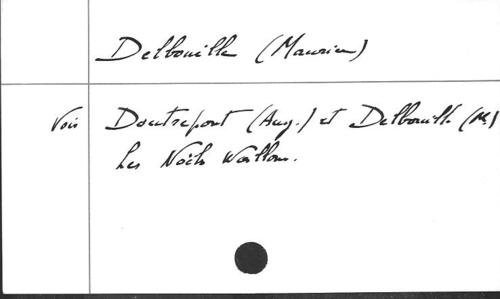 Delbouille (Maurice)
Voir Doutrepont (Aug.) et Delbouille (M.)
Les Noëls Wallons.